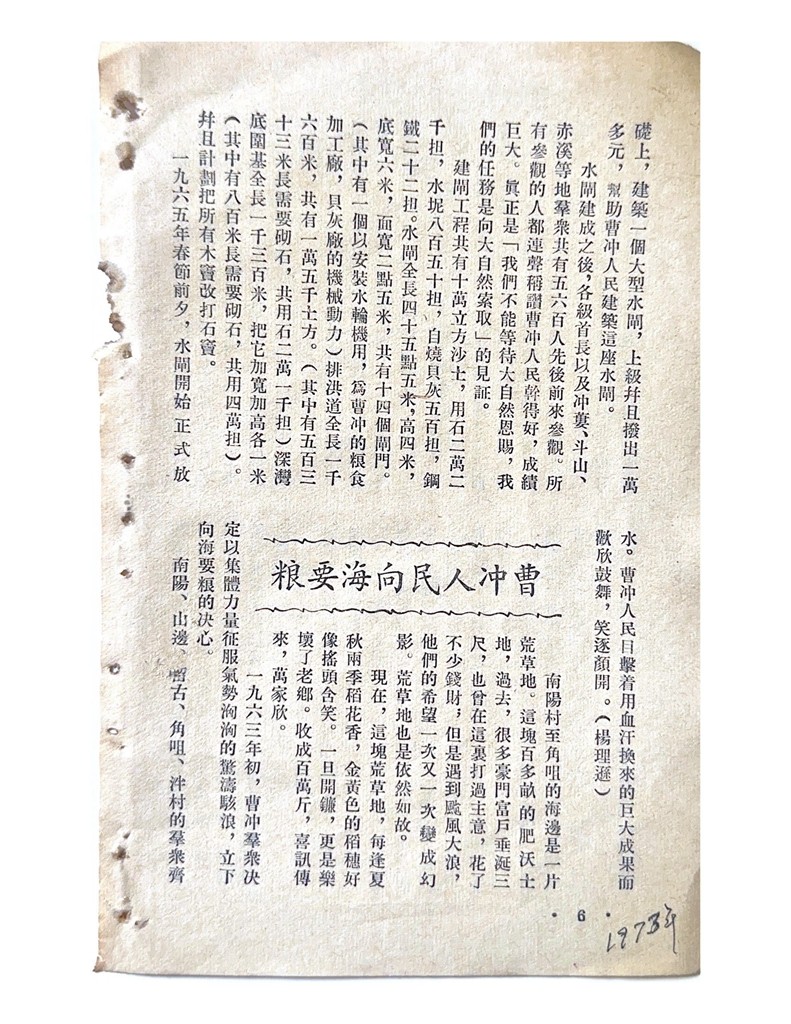 礎上，建築一個大型水閘，上級幷且撥出一萬
多元，幫助曹冲人民建築這座水閘。
水閘建成之後，各級首長以及冲蔞、斗山、
赤溪等地羣衆共有五六百人先後前來參觀。所
有參觀的人都連聲稱讚曹冲人民幹得好，成績
巨大。眞正是「我們不能等待大自然恩賜，我
們的任務是向大自然索取」的見証。
建閘工程共有十萬立方沙土，用石二萬二
千担，水坭八百五十担，自燒貝灰五百担，鋼
鐵二十二担。水閘全長四十五點五米，高四米，
底寬六米，面寬二點五米，共有十四個閘門。
（其中有一個以安裝水輪機用，爲曹冲的粮食
加工廠，貝灰廠的機械動力）排洪道全長一千
六百米，共有一萬五千土方。（其中有五百三
十三米長需要砌石，共用石二萬一千担）深灣
底圍基全長一千三百米，把它加寬加高各一米
（其中有八百米長需要砌石，共用四萬担）。
幷且計劃把所有木竇改打石竇。
一九六五年春節前夕，水閘開始正式放
水。曹冲人民目擊着用血汗換來的巨大成果而
歡欣鼓舞，笑逐顏開。（楊理遜）
曹冲人民向海要粮
南陽村至角咀的海邊是一片
荒草地。這塊百多畝的肥沃土
地，過去，很多豪門富戶垂涎三
尺，也曾在這裏打過主意，花了
不少錢財；但是遇到颱風大浪，
他們的希望一次又一次變成幻
影。荒草地也是依然如故。
現在，這塊荒草地，每逢夏
秋兩季稻花香，金黃色的稻穗好
像搖頭含笑。一旦開鐮，更是樂
壞了老鄉。收成百萬斤，喜訊傳
來，萬家欣。
一九六三年初，曹冲羣衆决
定以集體力量征服氣勢洶洶的驚濤駭浪，立下
向海要粮的决心。
南陽、山邊、古、角咀、泮村的羣衆齊
• 6 •
1973年